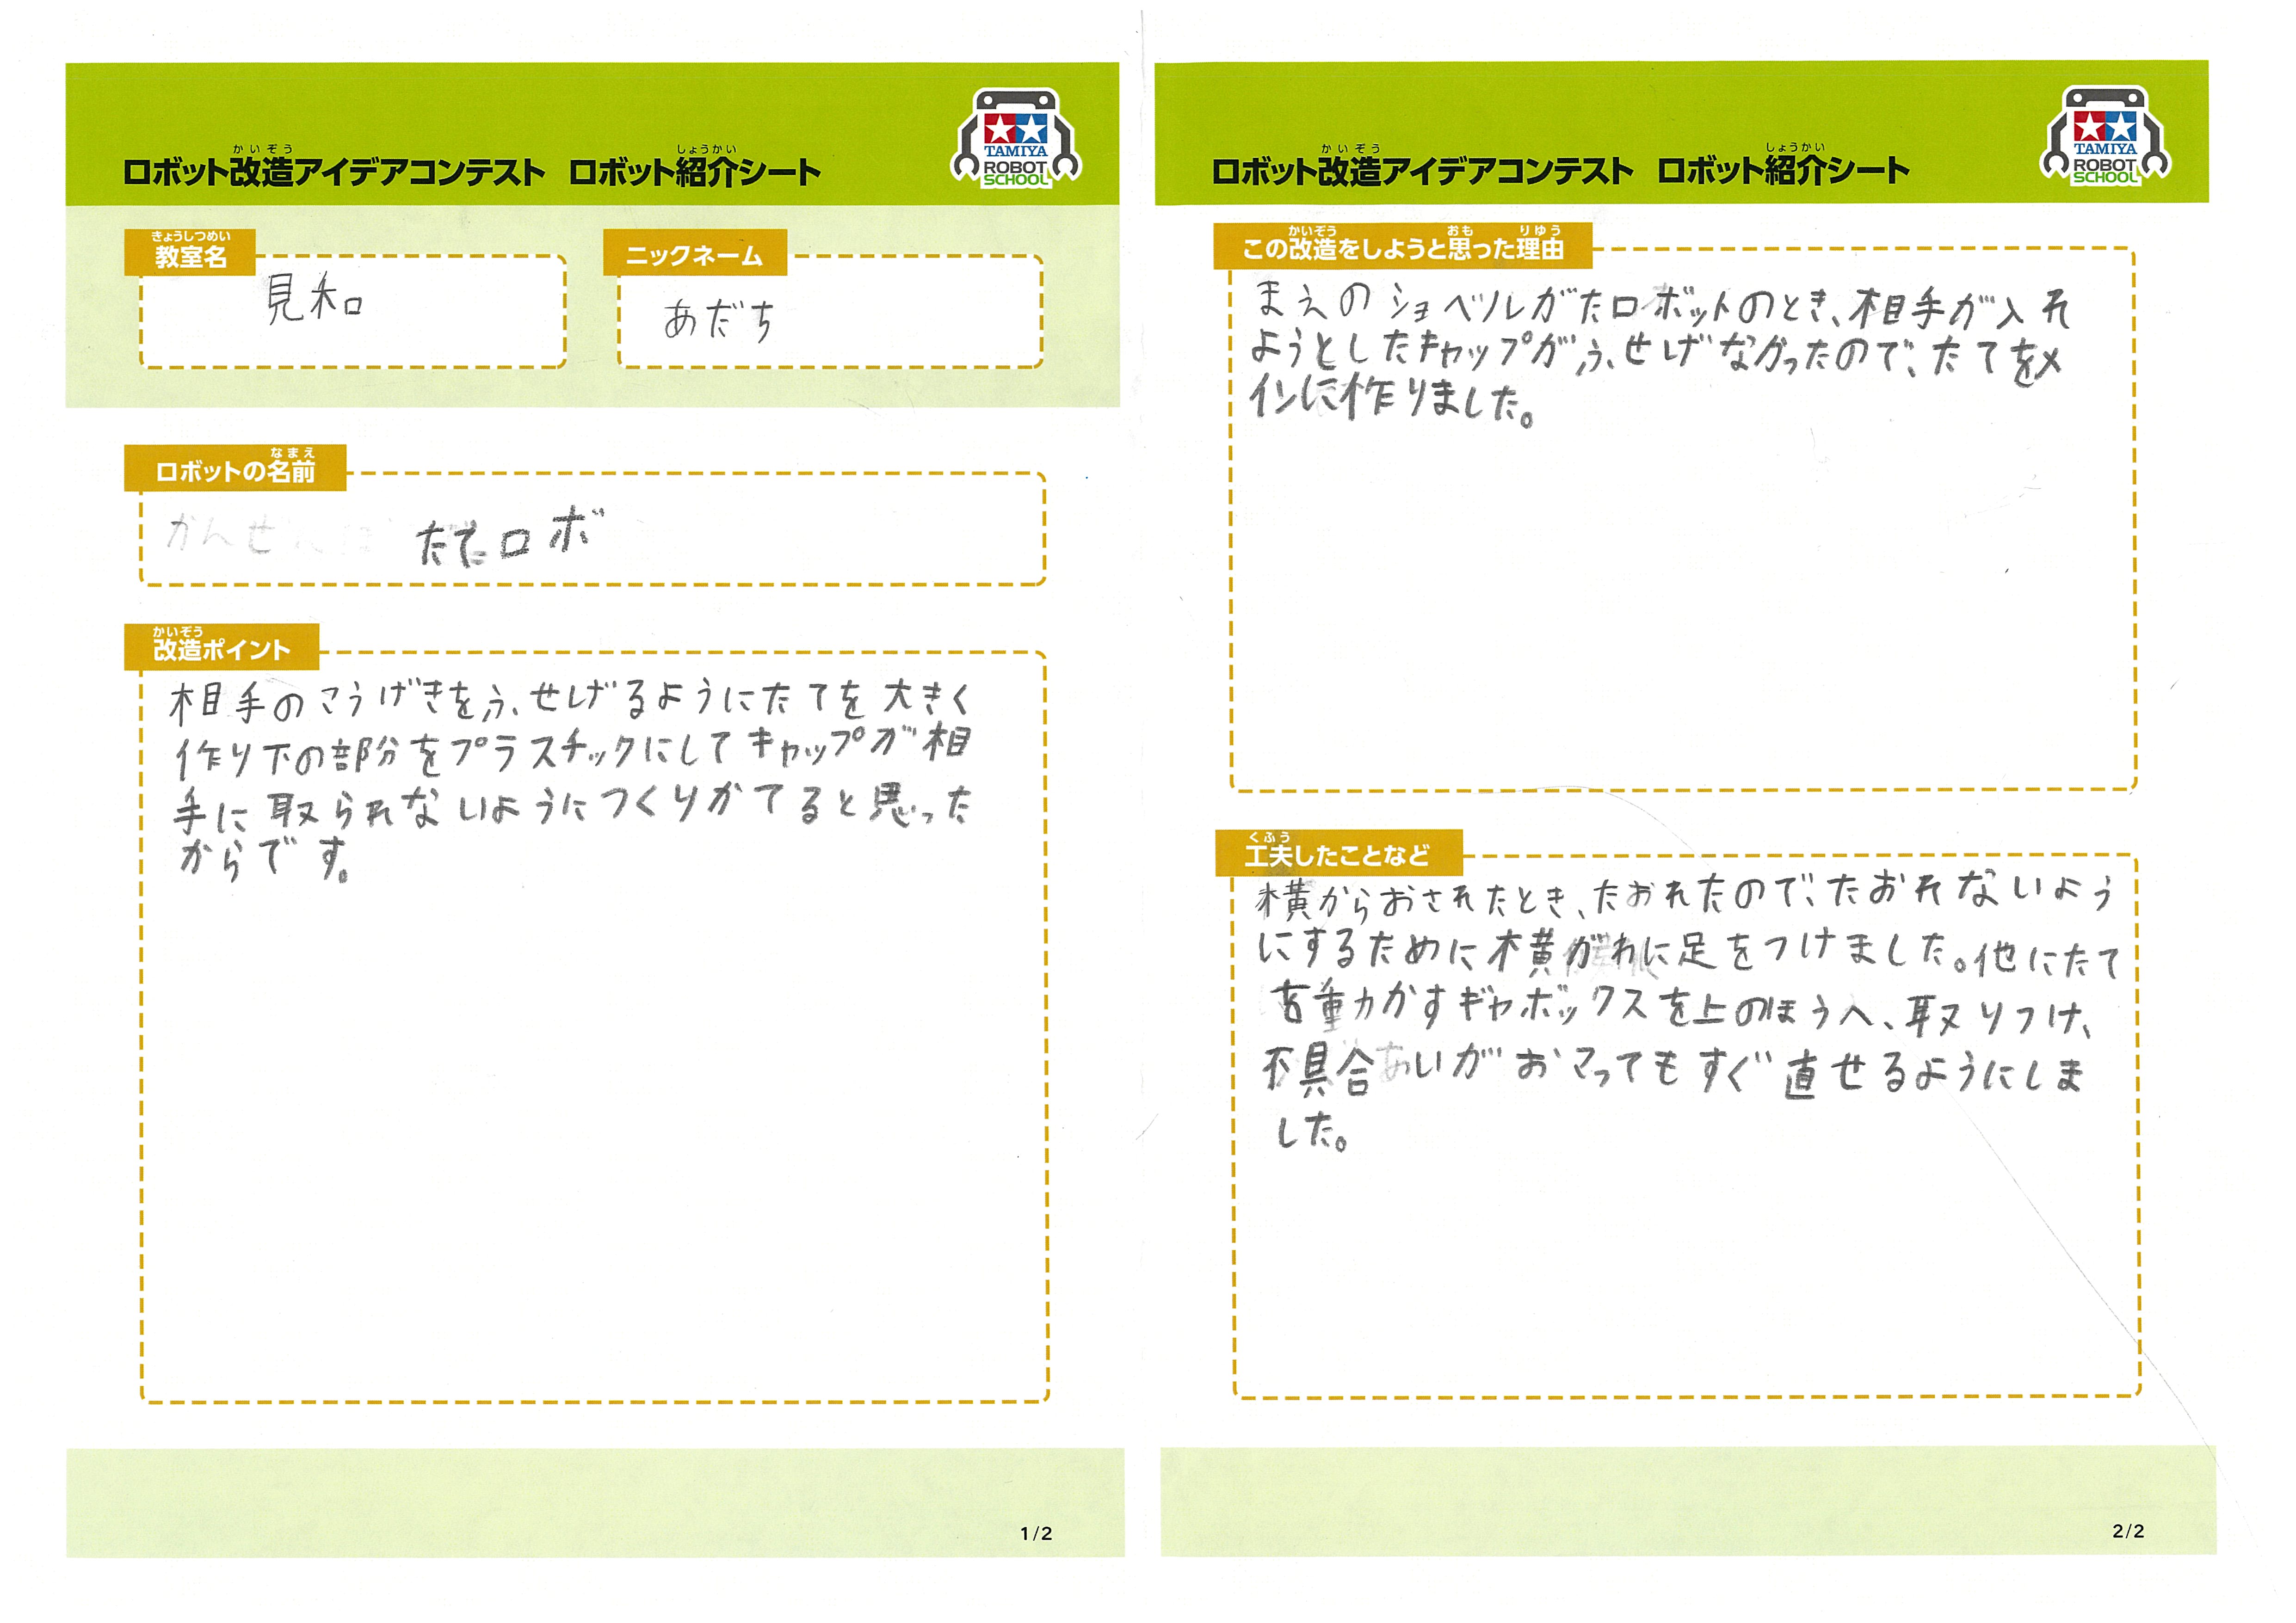 かいぞう しょうかい
ロボット改造アイデアコンテスト ロボット紹介シート
TAMIYA
ROBOT
SCHOOL
きょうしつめい
教室名
見和
ニックネーム
あだち
なまえ
ロボットの名前
ロボ
かいぞう
改造ポイント
相手のこうげきをふせげるようにたてを大きく
作り下の部分をプラスチックにしてキャップが相
手に取られないようにつくりかてると思った
からです。
1/2
かいぞう しょうかい
ロボット改造アイデアコンテスト ロボット紹介シート
TAMIYA
ROBOT
SCHOOL
かいぞう おも りゆう
この改造をしようと思った理由
まえのショベルがたロボットのとき、相手が入れ
ようとしたキャップがふせげなかったので、たてをメ
インに作りました。
くふう
工夫したことなど
横からおされたとき、たおれたので、たおれないよう
にするために横がわに足をつけました。他にたて
を動かすギヤボックスを上のほうへ、取りつけ、
不具合いがおこってもすぐ直せるようにしま
した。
2/2